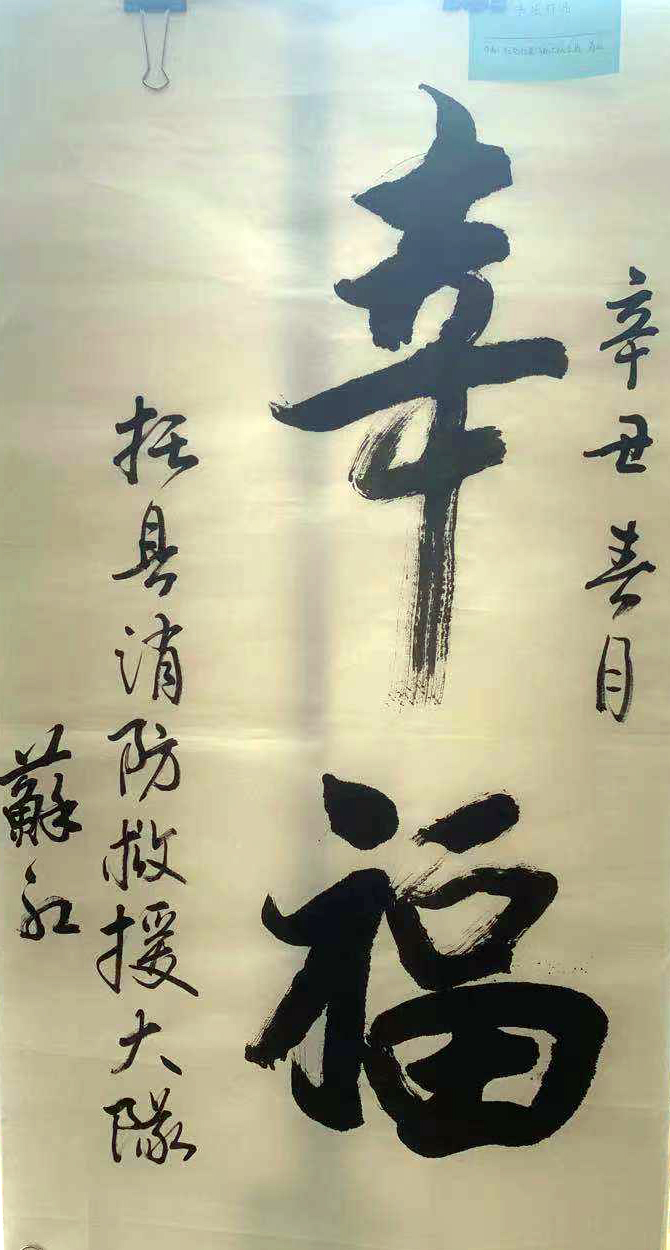 辛丑春月
幸福
托县消防救援大隊
蘇红